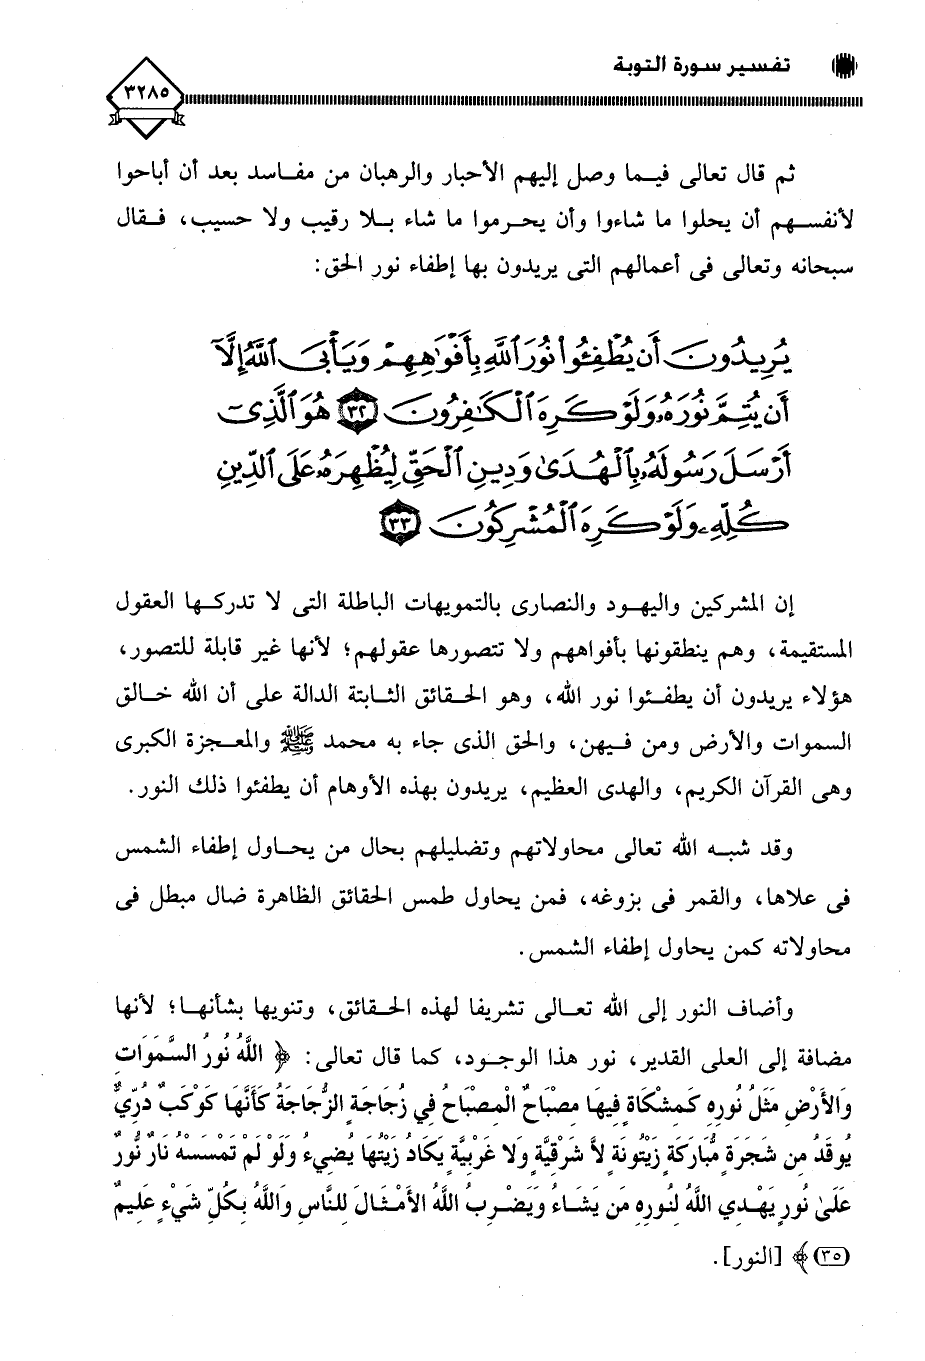 تفسير سورة التوبة
٣٢٨٥
ثم قال تعالى فيما وصل إليهم الأحبار والرهبان من مفاسد بعد أن أباحوا
لأنفسهم أن يحلوا ما شاءوا وأن يحرموا ما شاء بلا رقيب ولا حسيب، فقال
سبحانه وتعالى فى أعمالهم التى يريدون بها إطفاء نور الحق:
يُرِيدُونَ أَن يُطْفِـُٔوا۟ نُورَ ٱللَّهِ بِأَفْوَٰهِهِمْ وَيَأْبَى ٱللَّهُ إِلَّآ
أَن يُتِمَّ نُورَهُۥ وَلَوْ كَرِهَ ٱلْكَـٰفِرُونَ ٣٢ هُوَ ٱلَّذِىٓ
أَرْسَلَ رَسُولَهُۥ بِٱلْهُدَىٰ وَدِينِ ٱلْحَقِّ لِيُظْهِرَهُۥ عَلَى ٱلدِّينِ
كُلِّهِۦ وَلَوْ كَرِهَ ٱلْمُشْرِكُونَ ٣٣
إن المشركين واليهود والنصارى بالتمويهات الباطلة التى لا تدركها العقول
المستقيمة، وهم ينطقونها بأفواههم ولا تتصورها عقولهم؛ لأنها غير قابلة للتصور،
هؤلاء يريدون أن يطفئوا نور الله، وهو الحقائق الثابتة الدالة على أن الله خالق
السموات والأرض ومن فيهن، والحق الذى جاء به محمد ﷺ والمعجزة الكبرى
وهى القرآن الكريم، والهدى العظيم، يريدون بهذه الأوهام أن يطفئوا ذلك النور.
وقد شبه الله تعالى محاولاتهم وتضليلهم بحال من يحاول إطفاء الشمس
فى علاها، والقمر فى بزوغه، فمن يحاول طمس الحقائق الظاهرة ضال مبطل فى
محاولاته كمن يحاول إطفاء الشمس.
وأضاف النور إلى الله تعالى تشريفا لهذه الحقائق، وتنويها بشأنها؛ لأنها
مضافة إلى العلى القدير، نور هذا الوجود، كما قال تعالى: ﴿ اللَّهُ نُورُ السَّمَوَاتِ
وَالأَرْضِ مَثَلُ نُورِهِ كَمِشْكَاةٍ فِيهَا مِصْبَاحٌ الْمِصْبَاحُ فِي زُجَاجَةٍ الزُّجَاجَةُ كَأَنَّهَا كَوْكَبٌ دُرِّيٌّ
يُوقَدُ مِن شَجَرَةٍ مُّبَارَكَةٍ زَيْتُونَةٍ لاَّ شَرْقِيَّةٍ وَلا غَرْبِيَّةٍ يَكَادُ زَيْتُهَا يُضِيءُ وَلَوْ لَمْ تَمْسَسْهُ نَارٌ نُّورٌ
عَلَىٰ نُورٍ يَهْدِي اللَّهُ لِنُورِهِ مَن يَشَاءُ وَيَضْرِبُ اللَّهُ الأَمْثَالَ لِلنَّاسِ وَاللَّهُ بِكُلِّ شَيْءٍ عَلِيمٌ
(٣٥) ﴾ [النور].